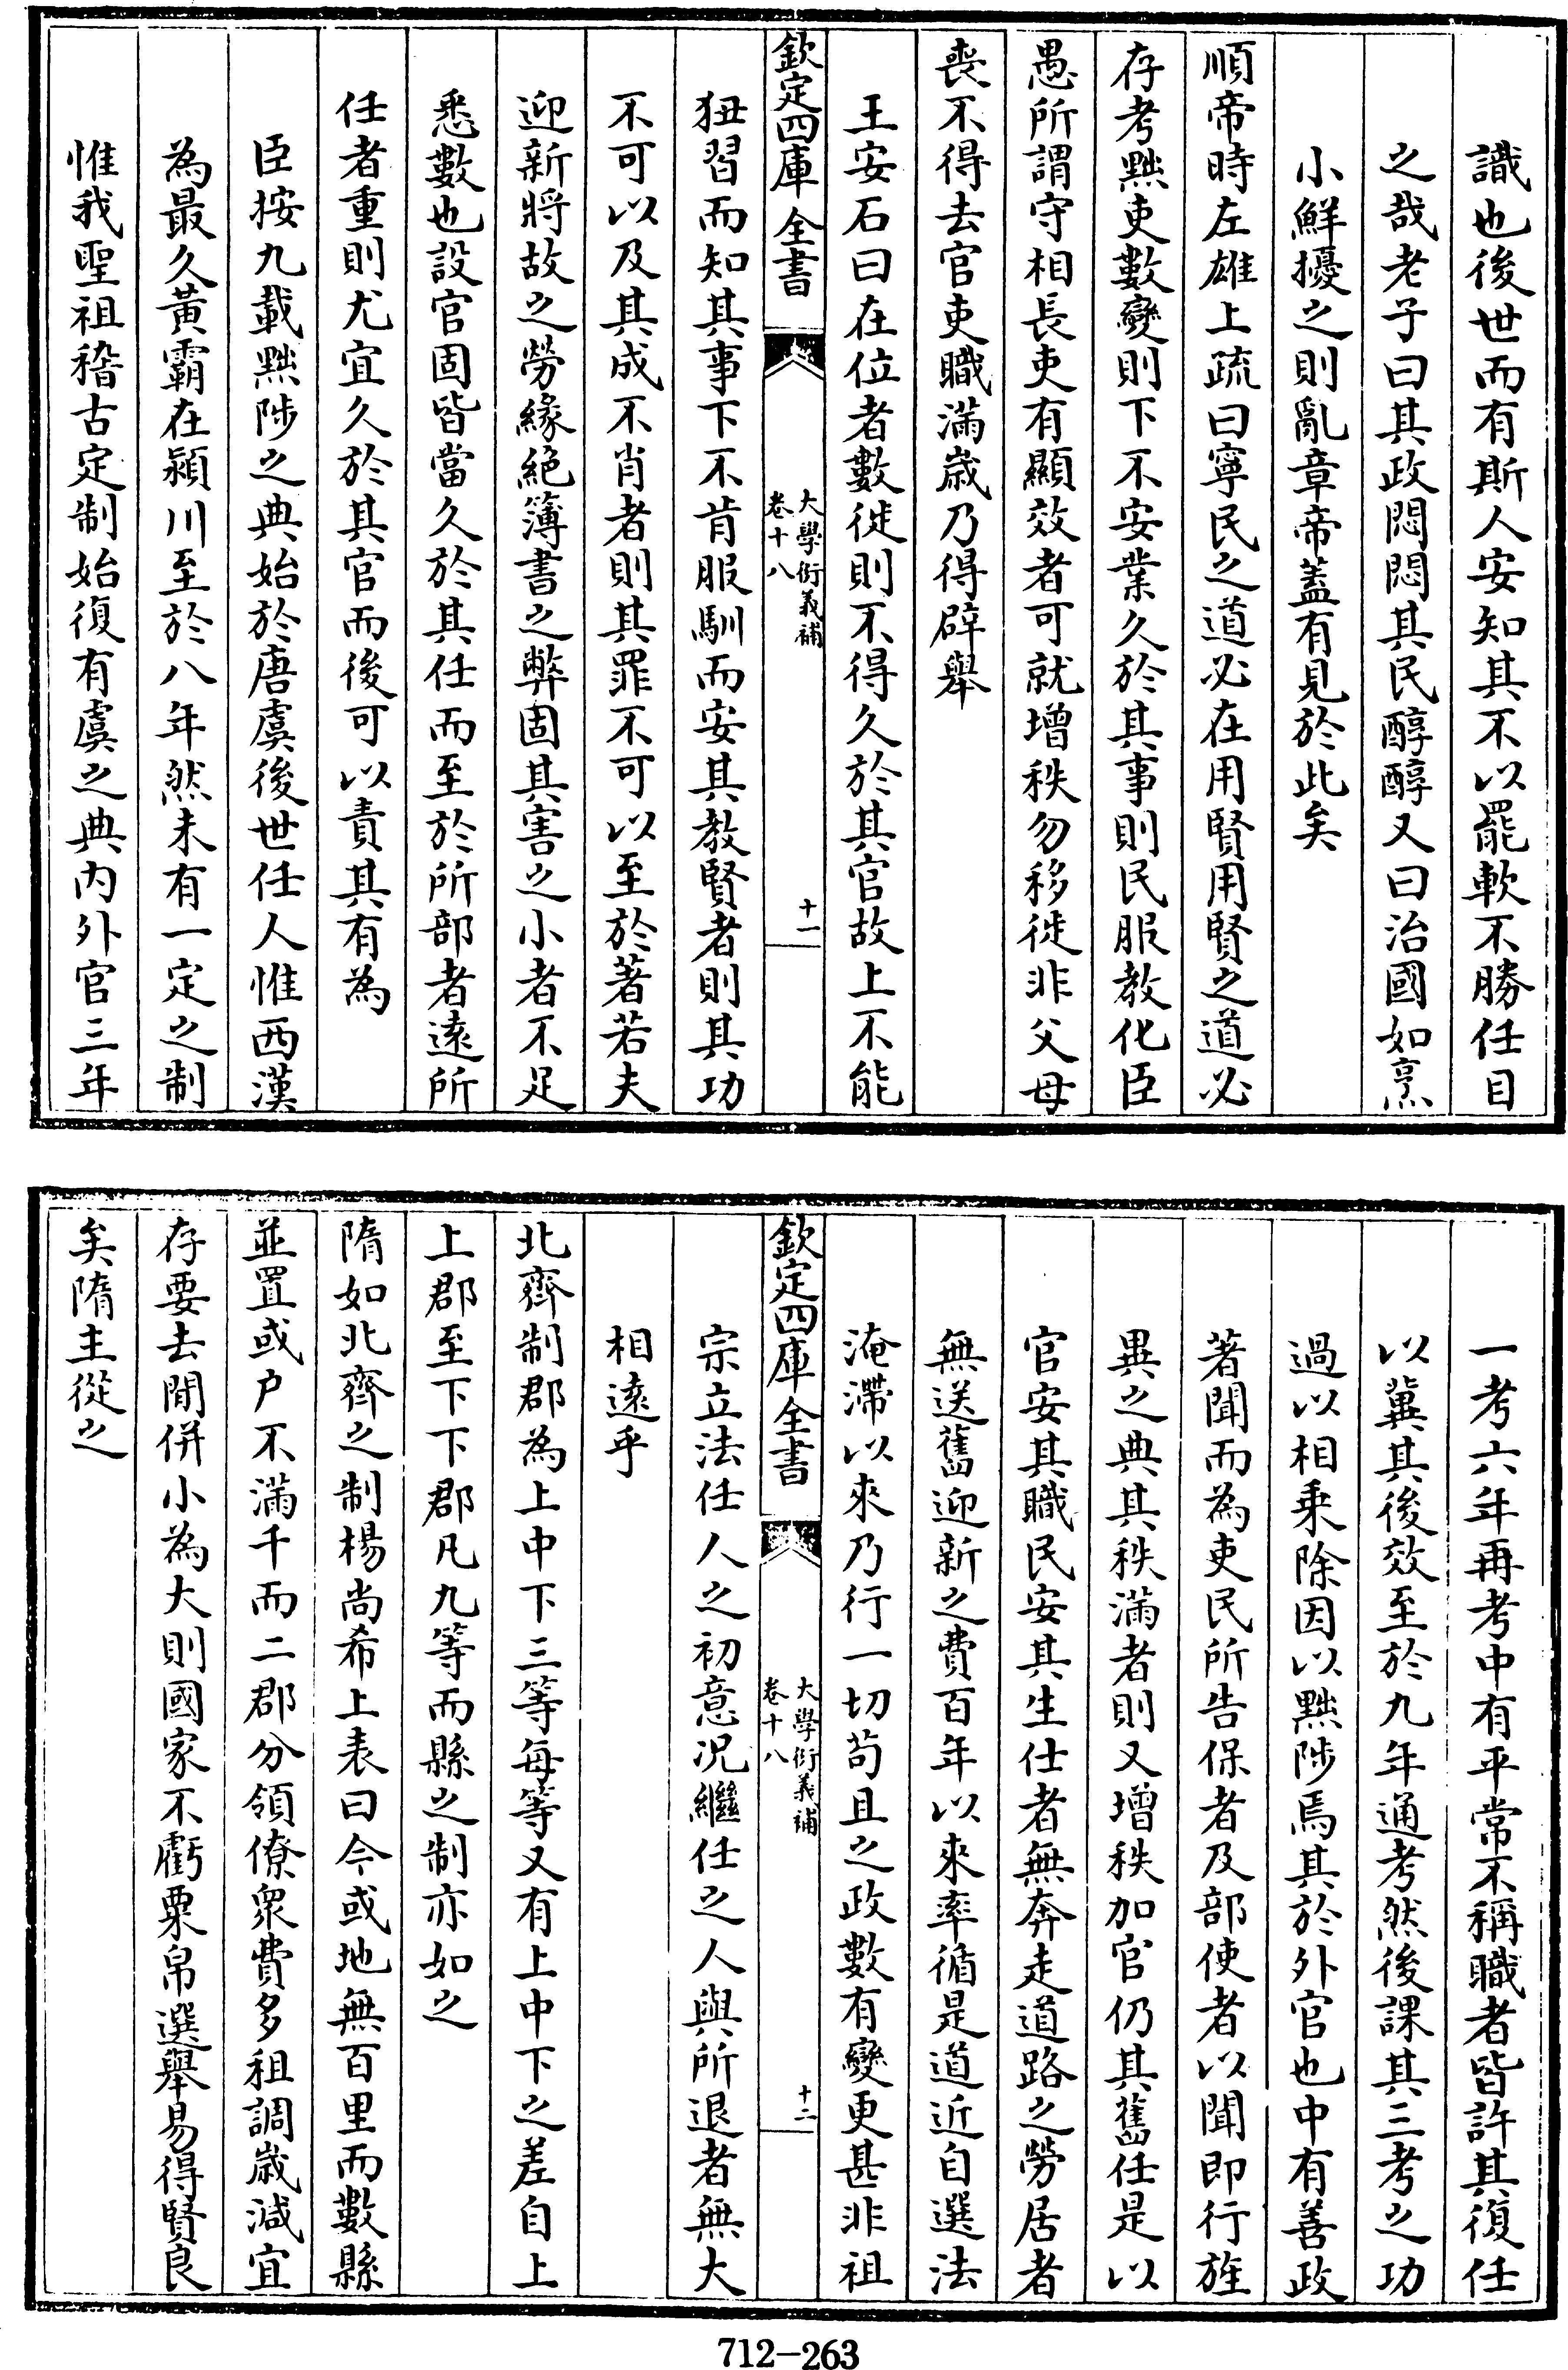 識也後世而有斯人安知其不以罷軟不勝任目
之哉老子曰其政悶悶其民醇醇又曰治國如烹
小鮮擾之則亂章帝蓋有見於此矣
順帝時左雄上疏曰寧民之道必在用賢用賢之道必
存考黜吏數變則下不安業久於其事則民服教化臣
愚所謂守相長吏有顯效者可就增秩勿移徙非父母
喪不得去官吏職滿歲乃得辟舉
王安石曰在位者數徙則不得久於其官故上不能
欽定四庫全書
大學衍義補
卷十八
十一
狃習而知其事下不肯服馴而安其教賢者則其功
不可以及其成不肖者則其罪不可以至於著若夫
迎新將故之勞緣絕簿書之弊固其害之小者不足
悉數也設官固皆當久於其任而至於所部者遠所
任者重則尤宜久於其官而後可以責其有為
臣按九載黜陟之典始於唐虞後世任人惟西漢
為最久黃霸在潁川至於八年然未有一定之制
惟我聖祖稽古定制始復有虞之典內外官三年
一考六年再考中有平常不稱職者皆許其復任
以冀其後效至於九年通考然後課其三考之功
過以相乗除因以黜陟焉其於外官也中有善政
著聞而為吏民所告保者及部使者以聞即行旌
異之典其秩滿者則又增秩加官仍其舊任是以
官安其職民安其生仕者無奔走道路之勞居者
無送舊迎新之費百年以來率循是道近自選法
淹滯以來乃行一切苟且之政數有變更甚非祖
欽定四庫全書
大學衍義補
卷十八
十二
宗立法任人之初意況繼任之人與所退者無大
相遠乎
北齊制郡為上中下三等每等又有上中下之差自上
上郡至下下郡凡九等而縣之制亦如之
隋如北齊之制楊尚希上表曰今或地無百里而數縣
並置或户不滿千而二郡分領僚衆費多租調歲減宜
存要去閒併小為大則國家不虧粟帛選舉易得賢良
矣隋主從之
712-263